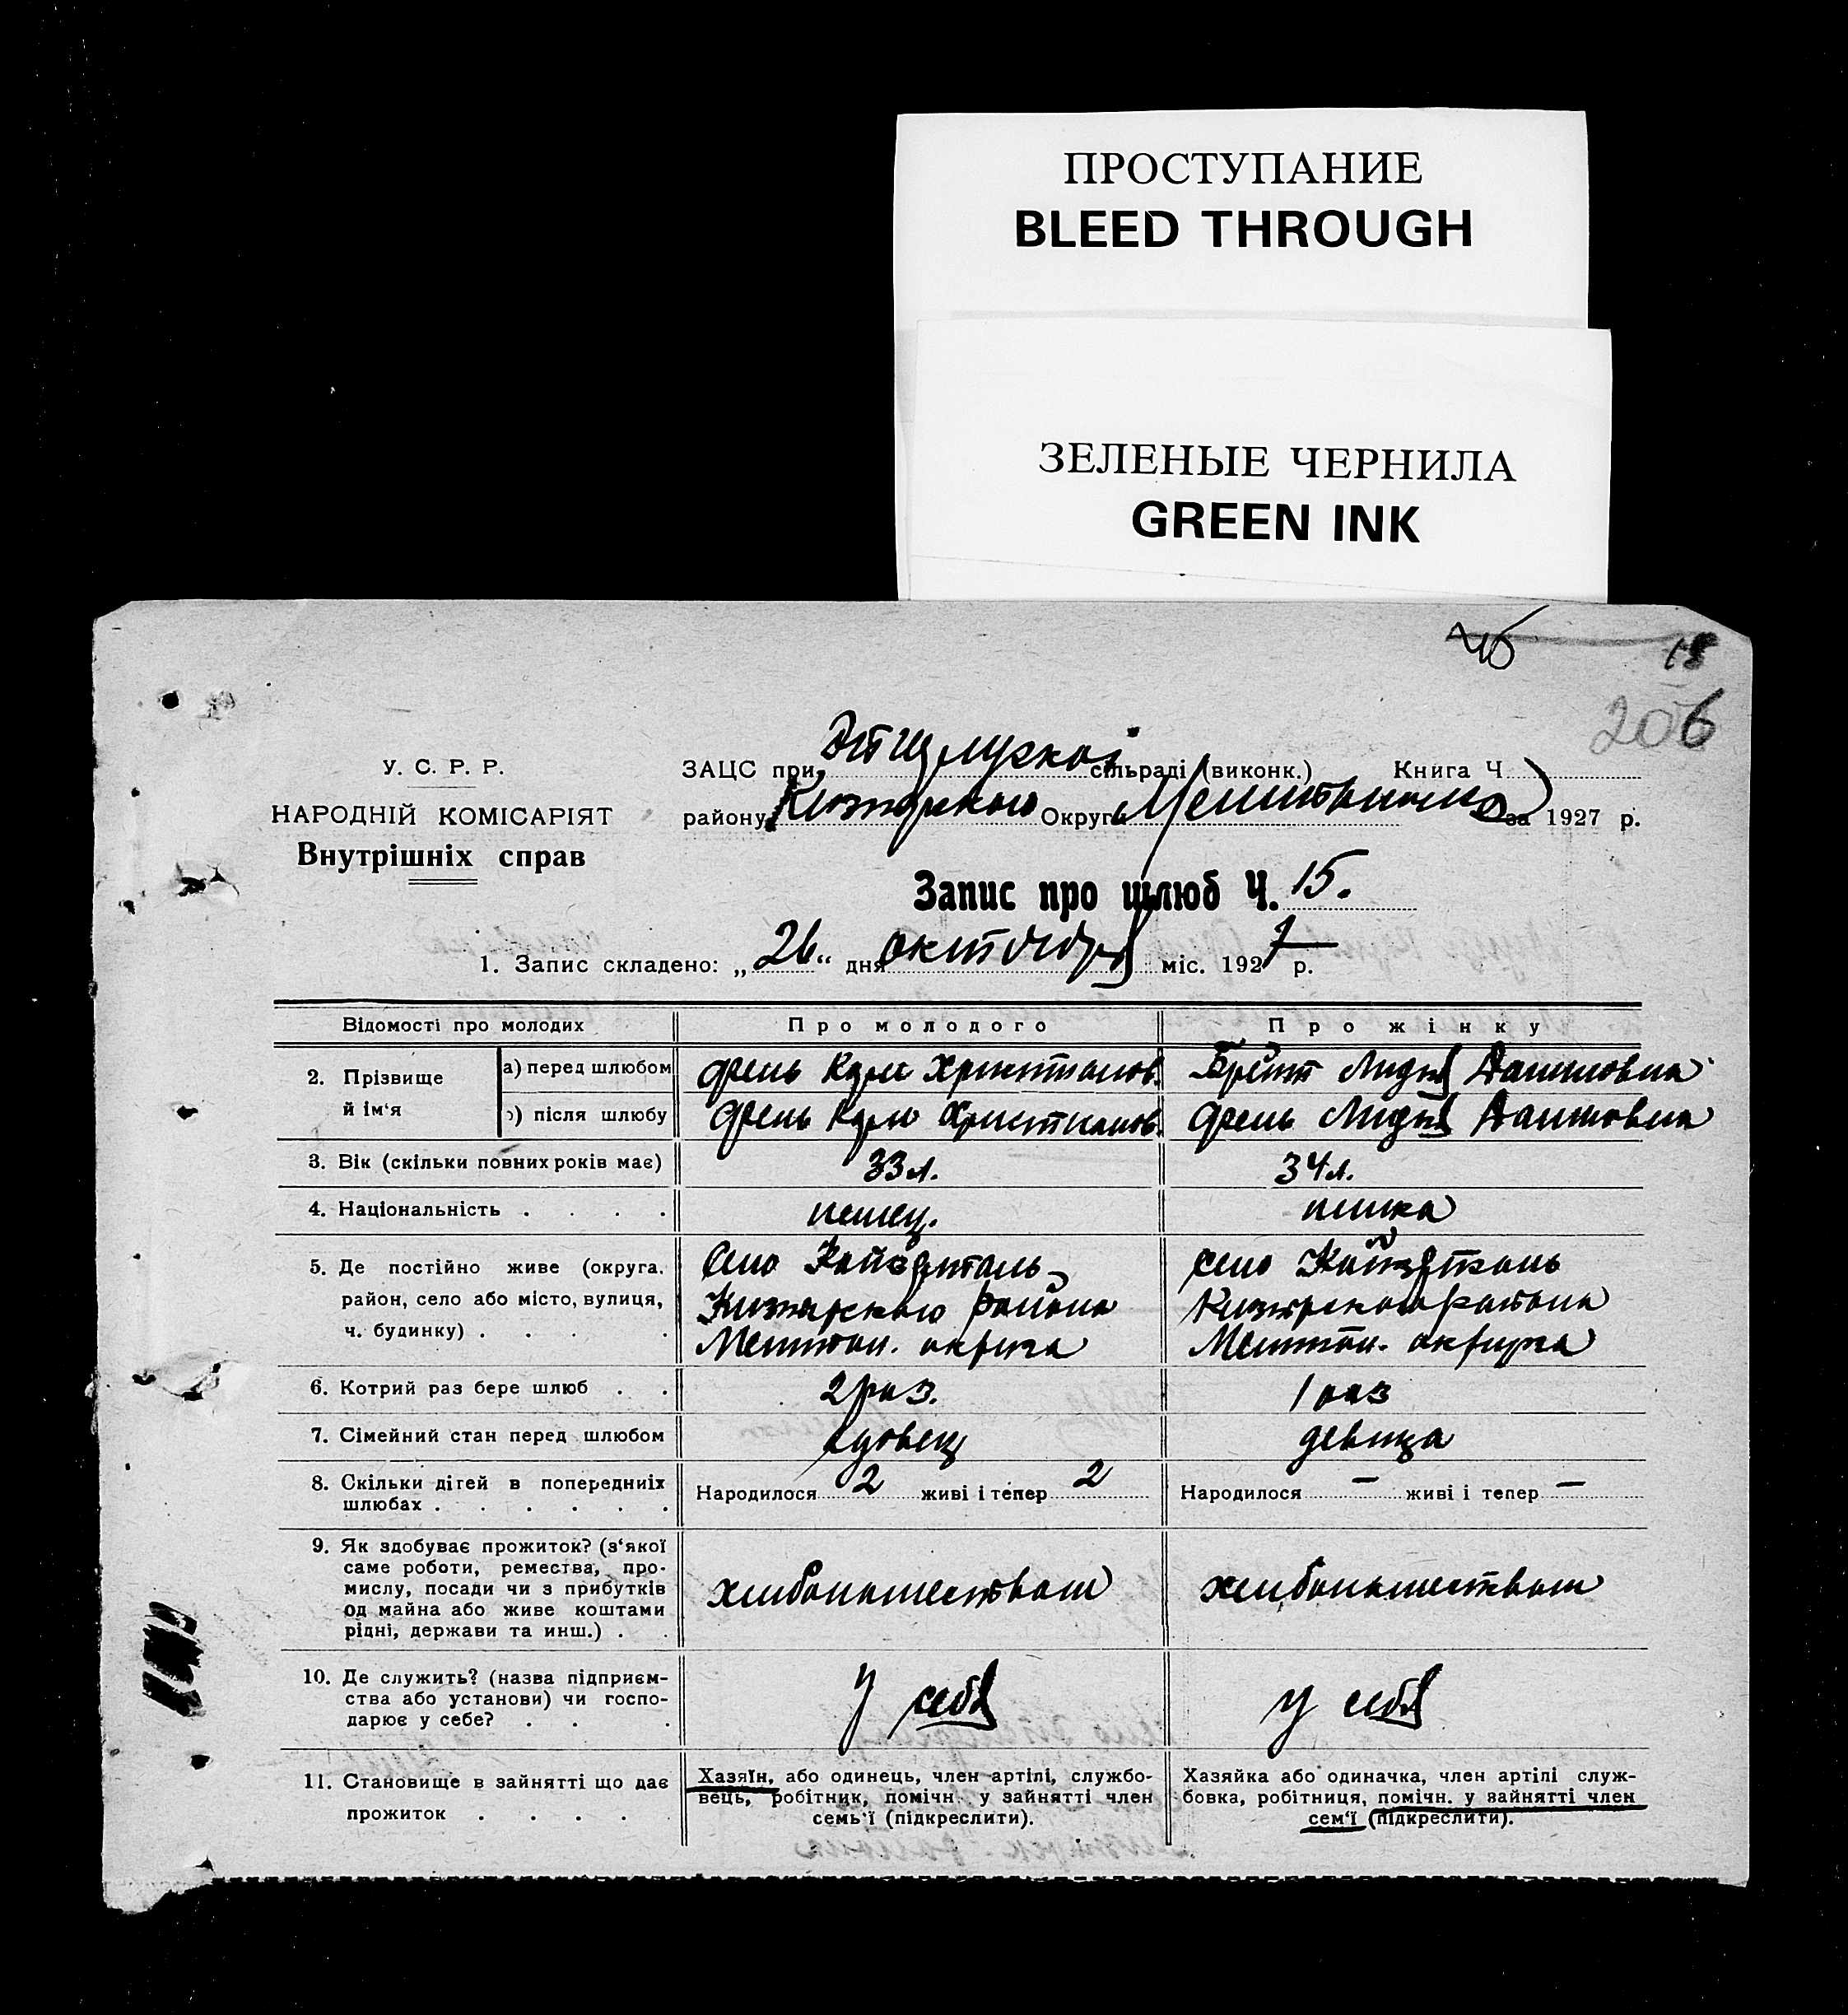 ПРОСТУПАНИЕ
BLEED THROUGH
ЗЕЛЕНЫЕ ЧЕРНИЛА
GREEN INK
18
206
У. С. Р. Р.
НАРОДНІЙ КОМІСАРІЯТ
Внутрішніх справ
ЗАЦС при сільраді (виконк.) Книга Ч
району Округи за 1927 р.
Запис про шлюб Ч. 15.
1. Запис складено: „ 26 “ дня октября міс. 1927 р.
Відомості про молодих Про молодого Про жінку
2. Прізвище й ім‘я
а) перед шлюбом Христианов. Лидия
) після шлюбу Христианов. Лидия
3. Вік (скільки повних років має) 33 л. 34 л.
4. Національність . . . . немец. немка
5. Де постійно живе (округа, Село село
район, село або місто, вулиця, района района
ч. будинку) . . . . округа округа
6. Котрий раз бере шлюб . . 2 раз. 1 раз
7. Сімейний стан перед шлюбом вдовец девица
8. Скільки дітей в попередниіх Народилося 2 живі і тепер 2 Народилося — живі і тепер —
шлюбах . . . . . .
9. Як здобуває прожиток? (з‘якої
саме роботи, ремества, про-
мислу, посади чи з прибутків
од майна або живе коштами
рідні, держави та инш.) . . хлебопашеством хлебопашеством
10. Де служить? (назва підприєм-
ства або установи) чи госпо-
дарює у себе? . . . у себя у себя
11. Становище в зайнятті що дає
прожиток . . . . .
Хазяїн, або одинець, член артілі, службо-
вець, робітник, помічн. у зайнятті член
семь‘ї (підкреслити).
Хазяйка або одиначка, член артілі служ-
бовка, робітниця, помічн. у зайнятті член
сем‘ї (підкреслити).